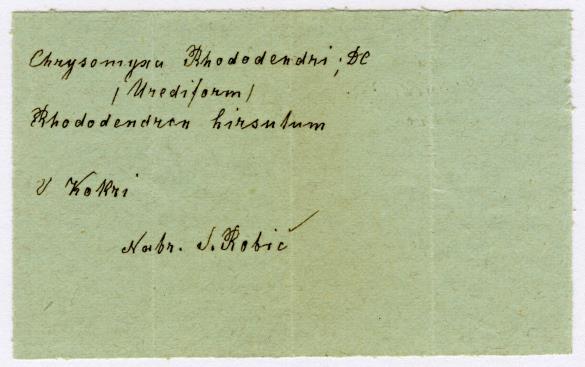 Chrysomyxa Rhododendri; DC
(Urediform)
Rhododendron hirsutum
V Kokri
Nabr. S. Robič